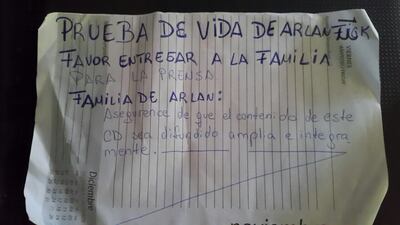 PRUEBA DE VIDA DE ARLAN FISK
FAVOR ENTREGAR A LA FAMILIA
PARA LA PRENSA
FAMILIA DE ARLAN:
Asegurence de que el contenido de este
CD sea difundido amplia e integra
mente.
Diciembre